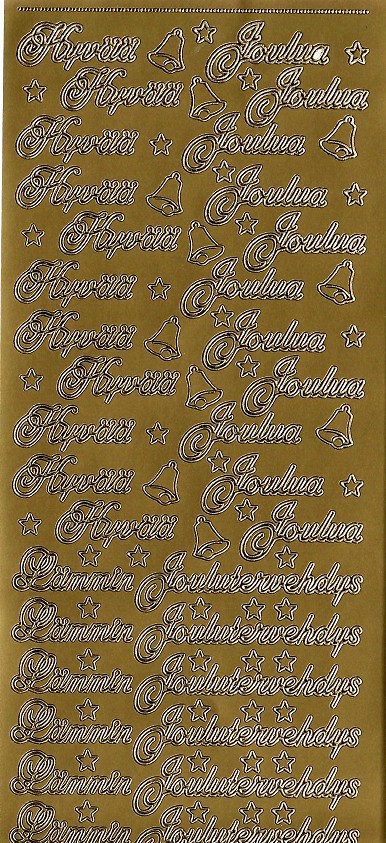 Hyvää Joulua
Hyvää Joulua
Hyvää Joulua
Hyvää Joulua
Hyvää Joulua
Hyvää Joulua
Hyvää Joulua
Hyvää Joulua
Hyvää Joulua
Hyvää Joulua
Hyvää Joulua
Lämmin Jouluterwehdys
Lämmin Jouluterwehdys
Lämmin Jouluterwehdys
Lämmin Jouluterwehdys
Lämmin Jouluterwehdys
Lämmin Jouluterwehdys